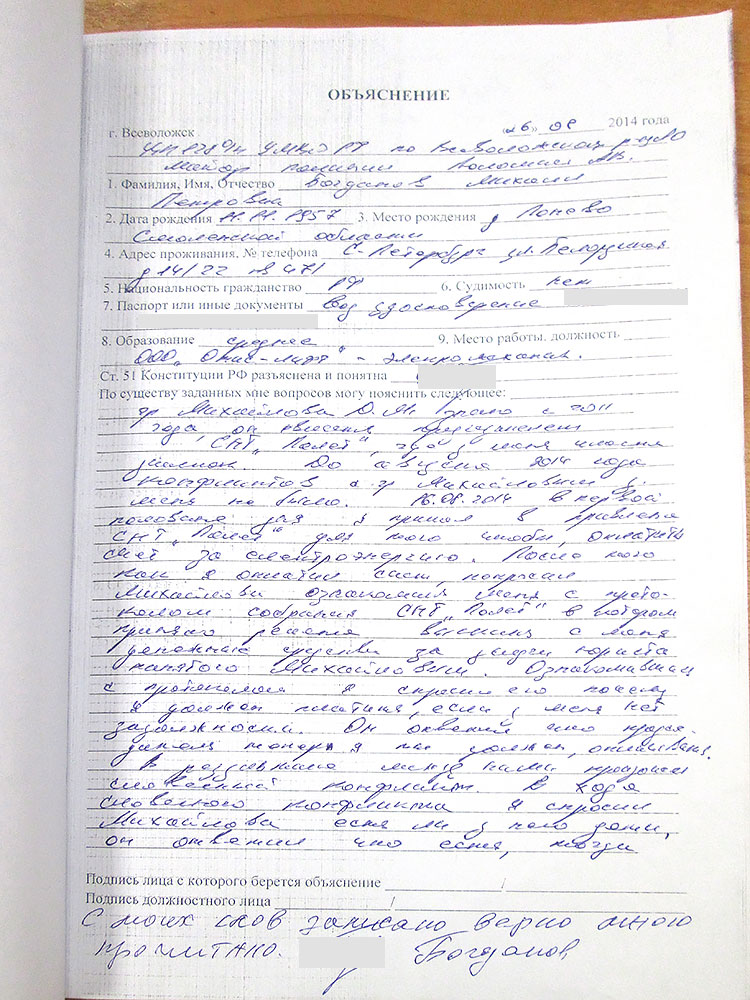 ОБЪЯСНЕНИЕ
г. Всеволожск «26» 08 2014 года
по Всеволожскому р-ну ЛО
Майор полиции
1. Фамилия, Имя, Отчество Богданов Михаил
Петрович
2. Дата рождения 1957 3. Место рождения д
Смоленской области
4. Адрес проживания, № телефона С-Петербург ул.
д 14/22 кв 471
5. Национальность гражданство РФ 6. Судимость нет
7. Паспорт или иные документы вод удостоверение
8. Образование среднее 9. Место работы, должность
ООО „Отис-лифт" - электромеханик.
Ст. 51 Конституции РФ разъяснена и понятна
По существу заданных мне вопросов могу пояснить следующее:
гр Михайлова О. М. знаю с 2011
года, он является председателем
СНТ „Полет", где у меня имеется
участок. До августа 2014 года
конфликтов с гр Михайловым у
меня не было. 16.08.2014 в первой
половине дня я пришел в правление
СНТ „Полет" для того чтобы, оплатить
счет за электроэнергию. После того
как я оплатил счет, попросил
Михайлова ознакомить меня с прото-
колом собрания СНТ „Полет" в котором
принято решение взыскать с меня
денежные средства за услуги юриста
нанятого Михайловым. Ознакомившись
с протоколом я спросил его почему
я должен платить, если у меня нет
задолжности. Он ответил что
теперь я должен, оплачивать.
В результате между нами произошел
словесный конфликт. В ходе
словесного конфликта я спросил
Михайлова есть ли у него дети,
он ответил что есть, тогда
Подпись лица с которого берется объяснение /
Подпись должностного лица /
С моих слов записано верно мною
прочитано. Богданов